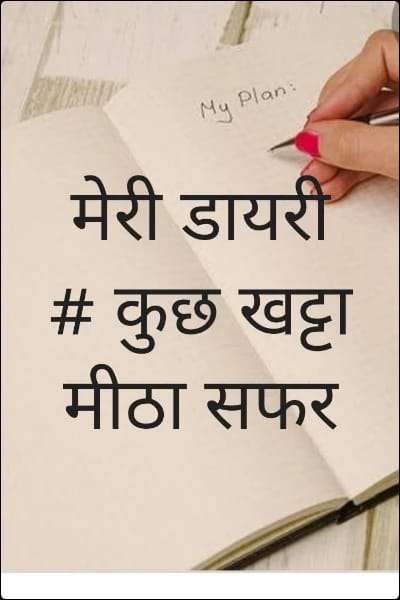 My Plan:
मेरी डायरी
# कुछ खट्टा
मीठा सफर